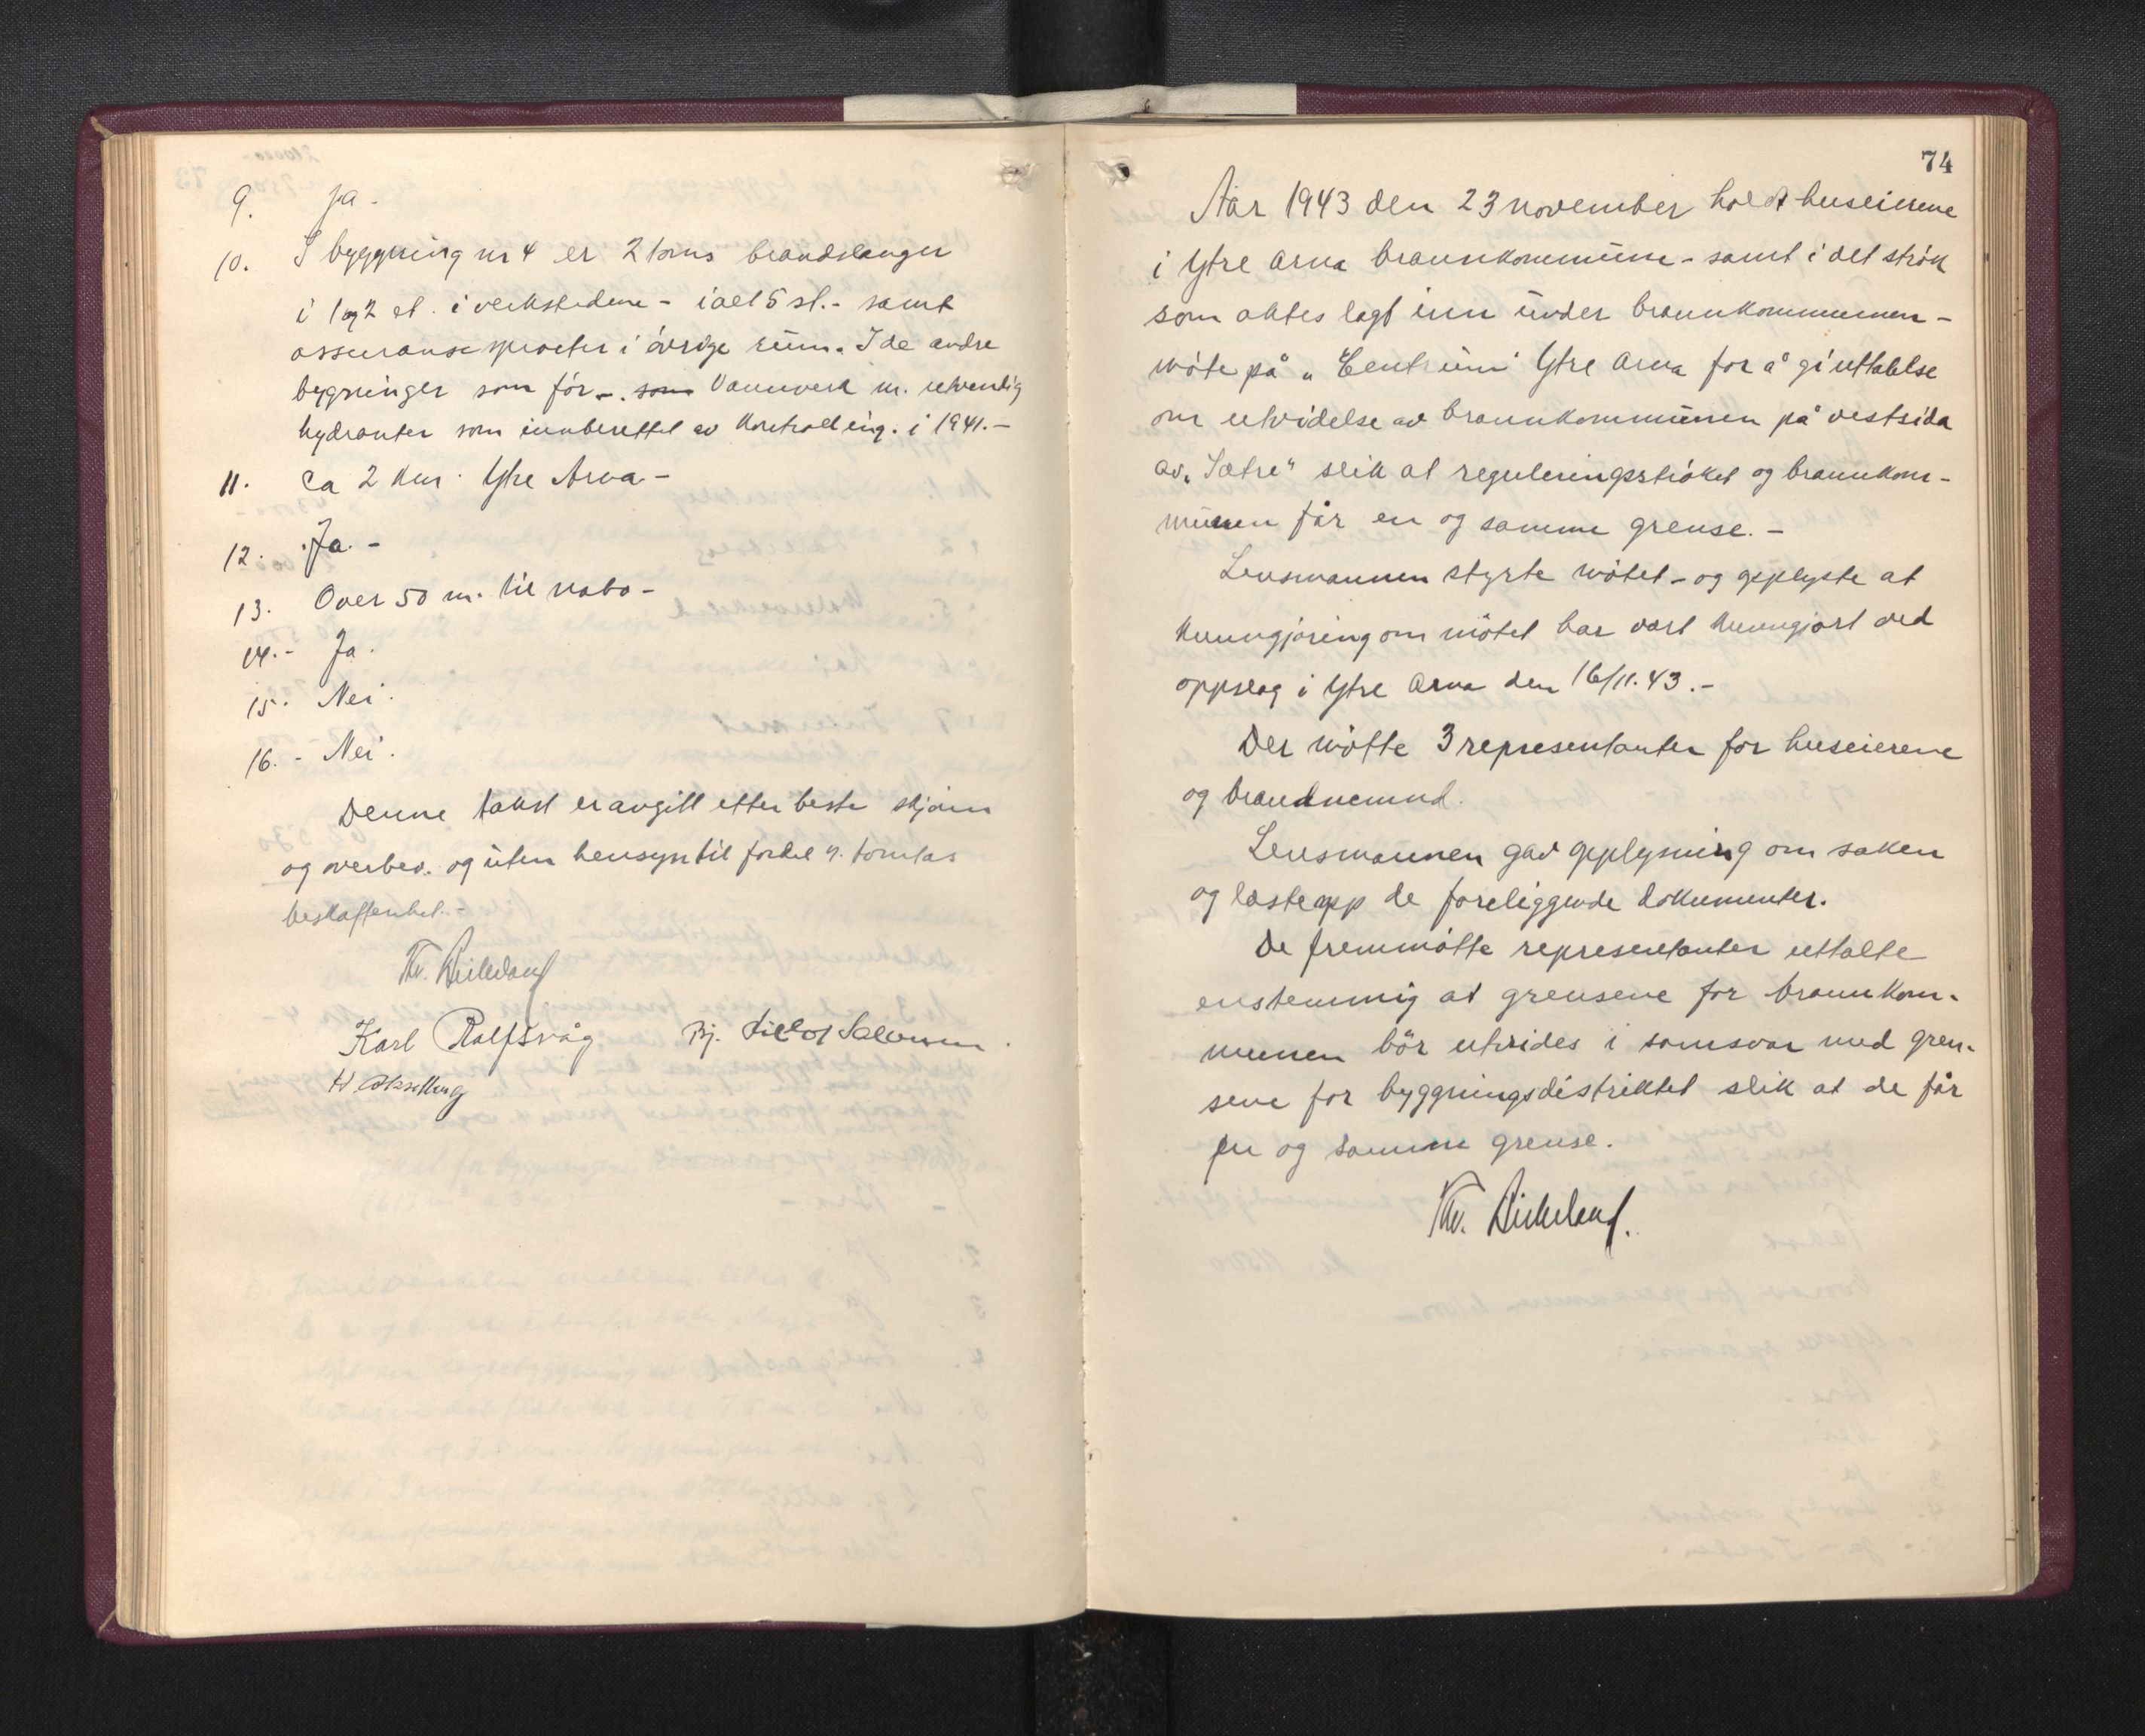 9. Ja -
10. I byggning nr 4 er 2 toms brandslanger
i 1 og 2 et. i verkstedene - ialt 5 st. - samt
assuransesprøiter i øvrige rum. I de andre
bygninger som før -. som Vannverk m. utvendig
hydranter som innberettet av Kontrolling. i 1941. -
11. Ca 2 km. Ytre Arna -
12. Ja. -
13. Over 50 m. til nabo -
14. - Ja.
15. Nei.
16. - Nei.
Denne takst er avgitt etter beste skjønn
og overbev. og uten hensyn til fordel v. tomtas
beskaffenhet. -
Thv. Birkeland
Karl Rolfsvåg Bj.
H
74
Aar 1943 den 23 november holdt huseierene
i Ytre Arna brannkommune - samt i det strøk
som aktes lagt inn under brannkommunen -
møte på "Centrum" Ytre Arna for å gi uttalelse
om utvidelse av brannkommunen på vestsida
av "Sætre" slik at reguleringsstrøket og brannkom-
munen får en og samme grense. -
Lensmannen styrte møtet - og opplyste at
kunngjøring om møtet har vært kunngjort ved
oppslag i Ytre Arna den 16/11. 43. -
Der møtte 3 representanter for huseierene
og brandnemnd.
Lensmannen gav opplysning om saken
og læste opp de foreliggende dokumenter.
De fremmøtte representanter uttalte
enstemmig at grensene for brannkom-
munen bør utvides i samsvar med gren-
sene for byggningsdistriktet slik at de får
en og samme grense.
Thv. Birkeland.